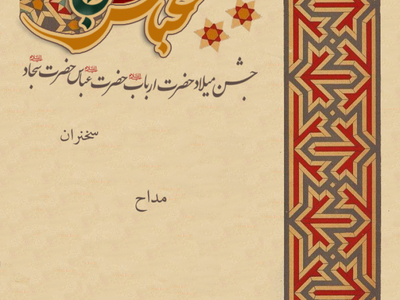 عباس
جشن میلاد حضرت ارباب حضرت عباس حضرت سجاد
سخنران
مداح